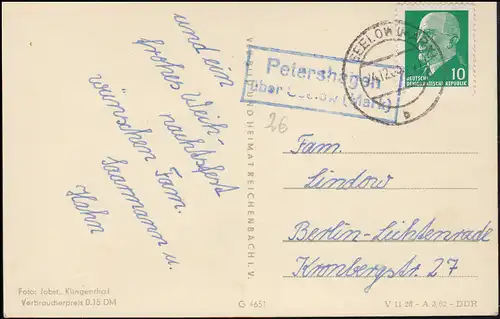 und ein
frohes Weih-
nachtsfest
wünschen Fam.
Saarmann u.
Hahn
Foto: Jobst, Klingenthal
Verbraucherpreis 0.15 DM
G 4651
V 11-28 - A 2/62 - DDR
Petershagen
über Seelow (Mark)
SEELOW (MARK)
b
DEUTSCHE
DEMOKRATISCHE REPUBLIK
10
26
Fam.
Lindow
Berlin-Lichtenrade
Kronbergstr. 27